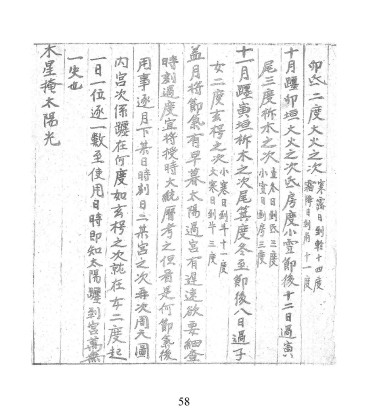 卯氐二度大火之次寒露日到軫十四度霜降日到角十一度
十月躔卯垣大火之次氐房度小雪節後十二日過寅
尾三度析木之次立冬日到氐三度小雪日到房三度
十一月躔寅垣析木之次尾箕度冬至節後八日過子
女二度玄枵之次小寒日到斗十一度大寒日到牛三度
蓋月將節氣有早暮太陽過宮有遲速欲要細查
時刻過度宜將授時大統曆考之但看是何節氣後
用事逐月下某日時刻日二某宮之次再次周天圖
內宮次係躔在何度如玄枵之次就在女二度起
一日一位逐一數至使用日時即知太陽躔到宮萬無
一失也
木星掩太陽光
58